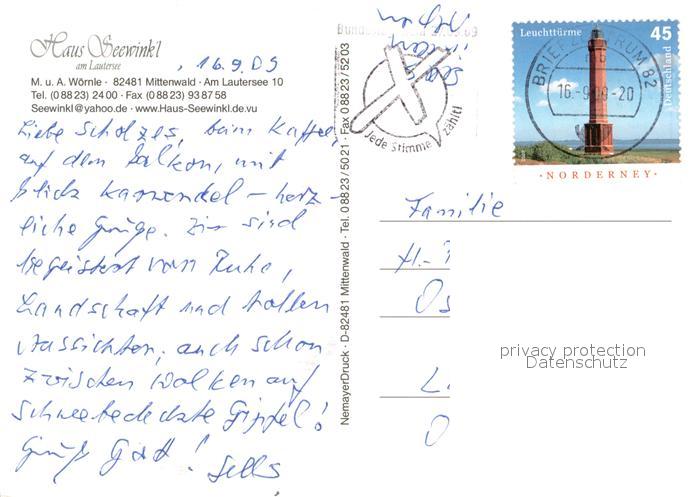 Haus Seewinkl
am Lautersee
, 16.9.09
M. u. A. Wörnle · 82481 Mittenwald · Am Lautersee 10
Tel. (0 88 23) 24 00 · Fax (0 88 23) 93 87 58
Seewinkl@yahoo.de · www.Haus-Seewinkl.de.vu
Liebe Scholzes, beim Kaffee,
auf dem Balkon, mit
Blick Karwendel – herz-
liche Grüße. Wir sind
begeistert von Ruhe,
Landschaft und tollen
Aussichten, auch schon
zwischen Wolken auf
schneebedeckte Gipfel!
Grüß Gott!
NemayerDruck · D-82481 Mittenwald · Tel. 0 88 23 / 50 21 · Fax 0 88 23 / 52 03
Jede Stimme zählt!
Leuchttürme 45
Deutschland
BRIEFZENTRUM 82
mb
16.-9.09-20
·NORDERNEY·
Familie
H.-
Os
L.
O
privacy protection
Datenschutz